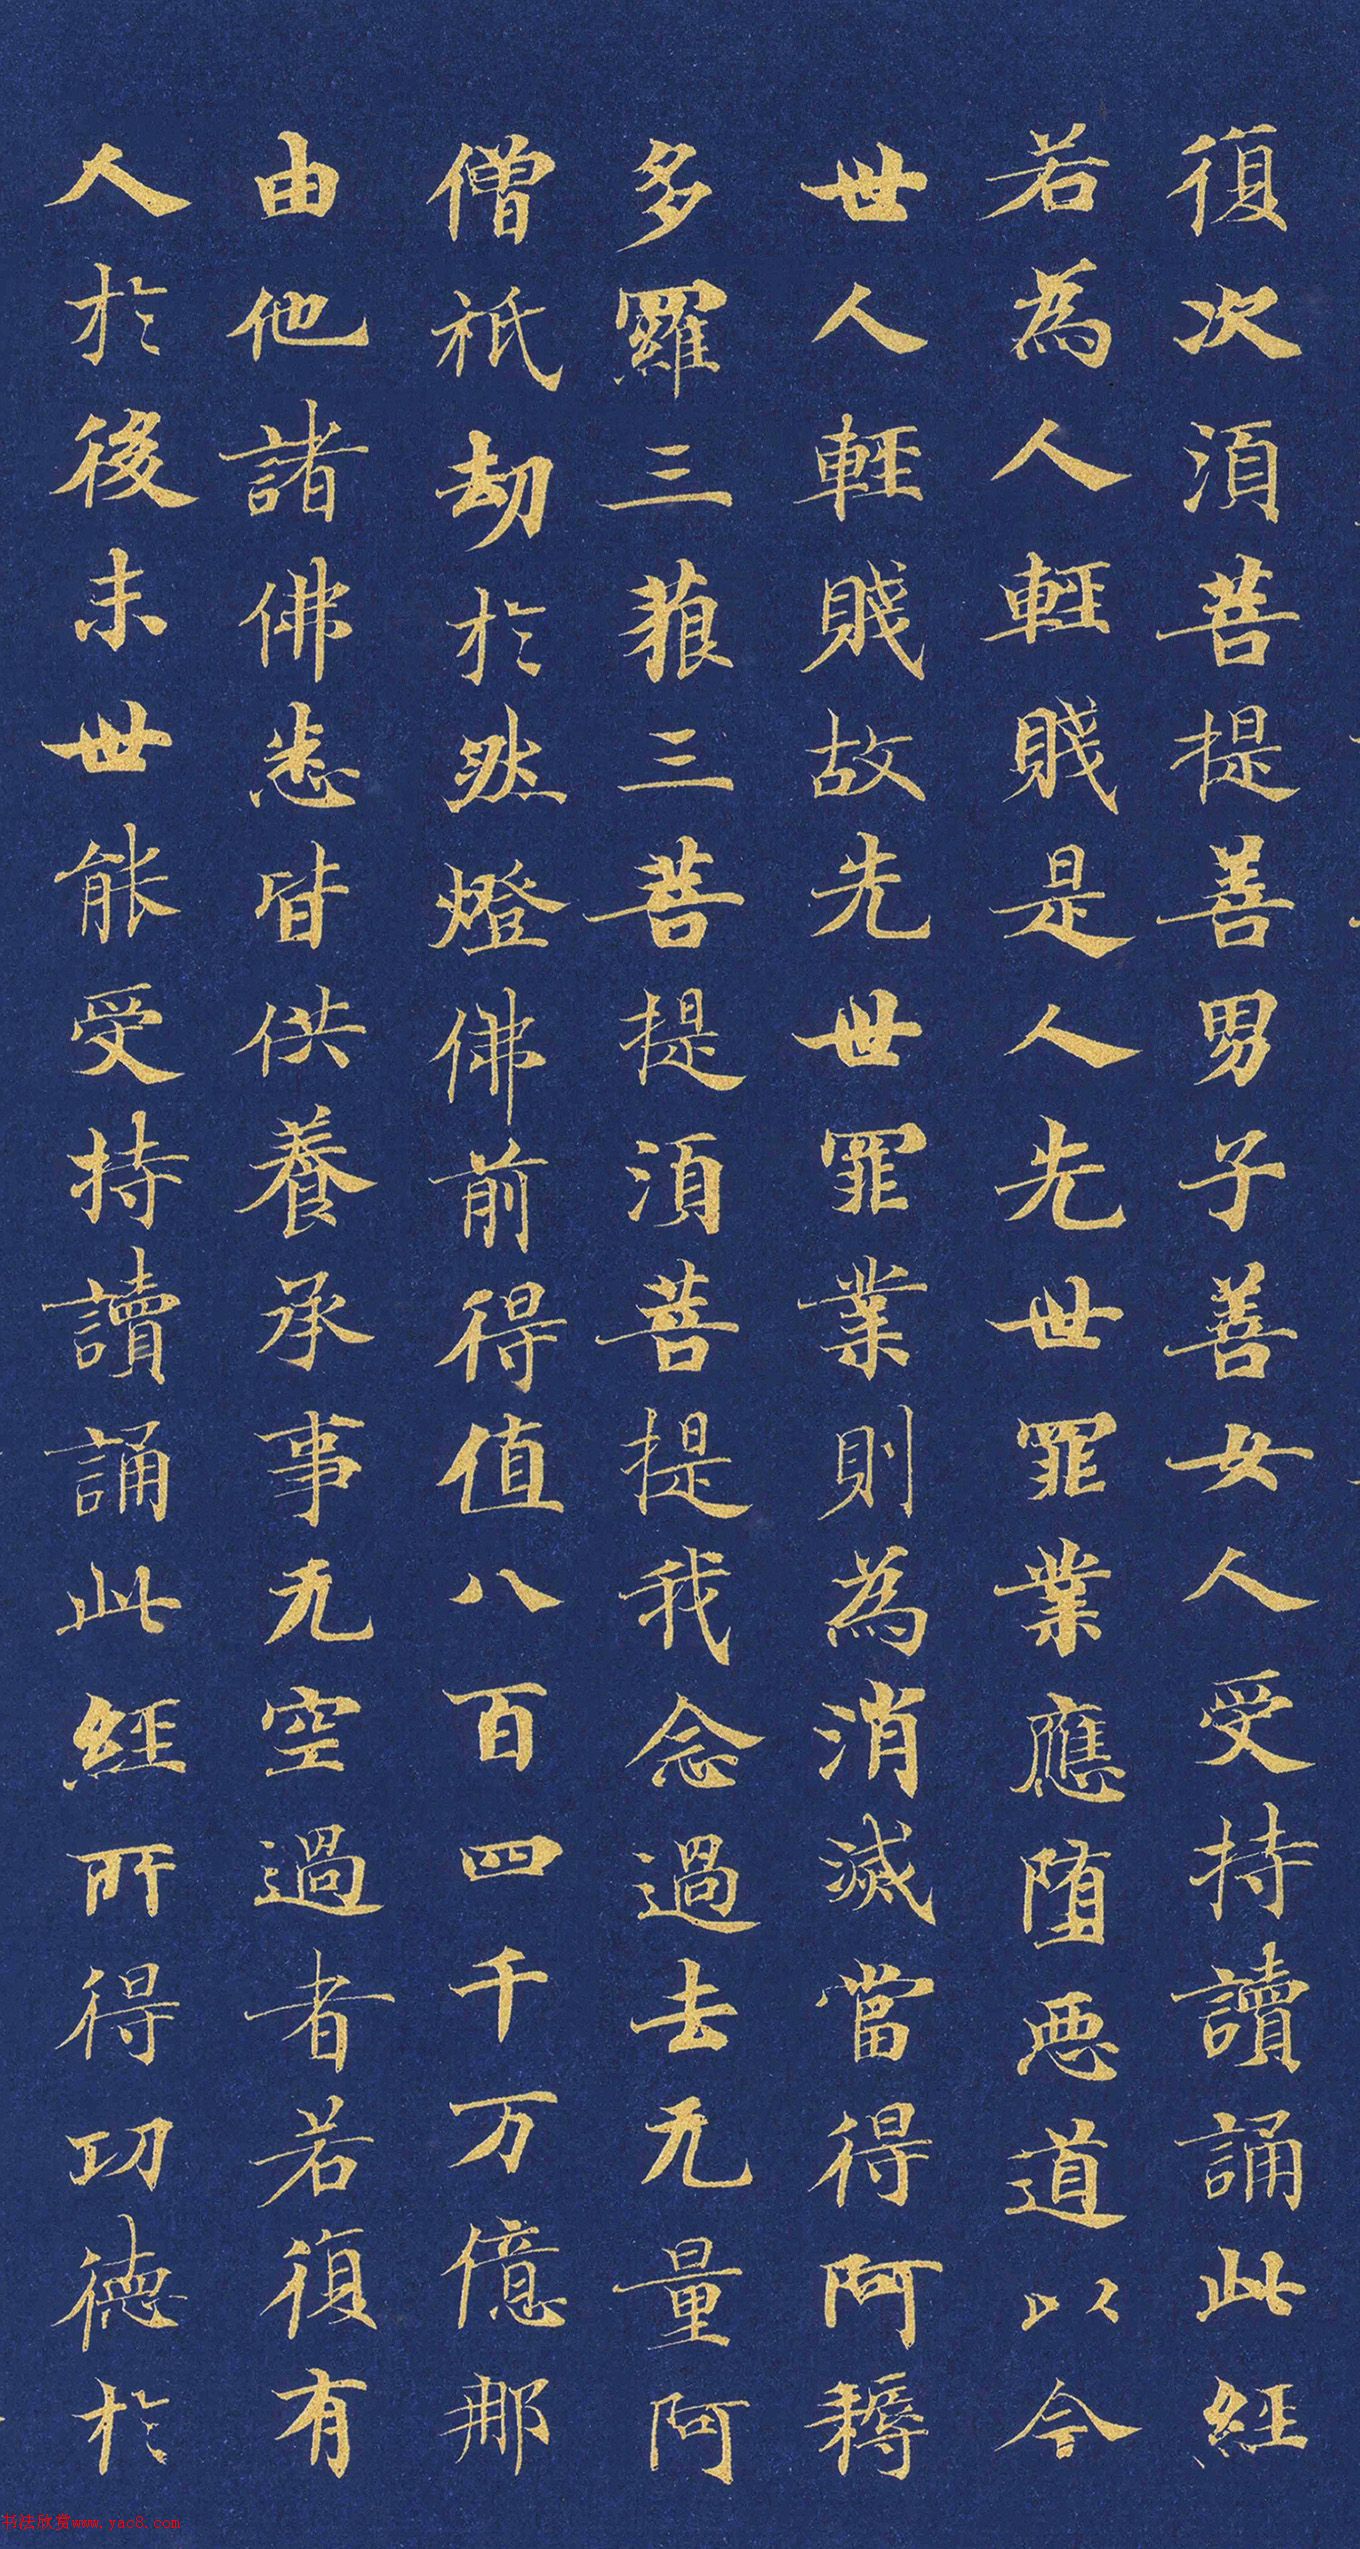 復次須菩提善男子善女人受持讀誦此經
若為人輕賤是人先世罪業應堕悪道以今
世人輕賤故先世罪業則為消滅當得阿耨
多羅三藐三菩提須菩提我念過去无量阿
僧祇劫於然燈佛前得值八百四千万億那
由他諸佛悉皆供養承事无空過者若復有
人於後末世能受持讀誦此經所得功德於
书法欣赏www.yac8.com